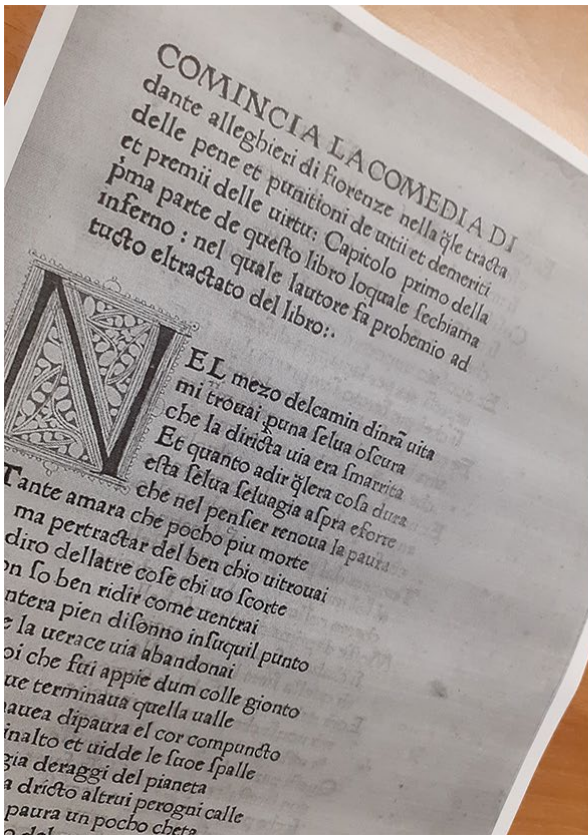 COMINCIA LA COMEDIA DI
dante alleghieri di fiorenze nella q̃le tracta
delle pene et punitioni de uitii et demeriti
et premii delle uirtu: Capitolo primo della
p̃ma parte de queſto libro loquale ſechiama
inferno : nel quale lautore fa prohemio ad
tucto eltractato del libro:.
NEL mezo delcamin dinr̃a uita
mi trouai ꝑuna ſelua oſcura
che la diricta uia era ſmarrita
Et quanto adir q̃lera coſa dura
eſta ſelua ſeluagia aſpra eforte
che nel penſier renoua la paura
Tante amara che pocho piu morte
ma pertractar del ben chio uitrouai
diro dellatre coſe chi uo ſcorte
ſo ben ridir come uentrai
pien diſonno inſuquil punto
la uerace uia abandonai
che fui appie dum colle gionto
terminaua quella ualle
dipaura el cor compuncto
inalto et uidde le ſuoe ſpalle
deraggi del pianeta
dricto altrui perogni calle
paura un pocho cheta